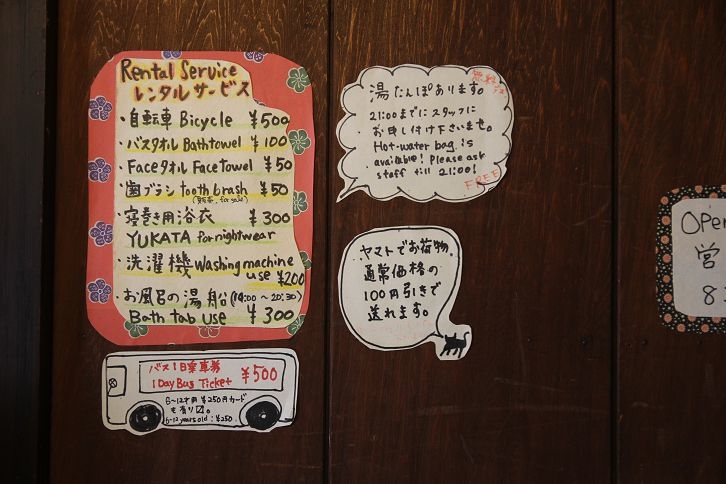 Rental Service
レンタルサービス
・自転車 Bicycle ¥500
・バスタオル Bathtowel ¥100
・Faceタオル Face Towel ¥50
・歯ブラシ tooth brash ¥50
for sale)
・寝巻き用浴衣 ¥300
YUKATA for nightwear
・洗濯機 Washing machine
use ¥200
・お風呂の湯船 (14:00~20:30)
Bath tab use ¥300
バス1日乗車券
1 Day Bus Ticket ¥500
6~12才用 ¥250円カード
も有り〼。
6-12years old : ¥250
無料
湯たんぽあります。
21:00までにスタッフに
お申し付け下さいませ。
Hot-water bag is
available! Please ask
staff till 21:00!
FREE
ヤマトでお荷物
通常価格の
100円引きで
送れます。
Open
営
8: